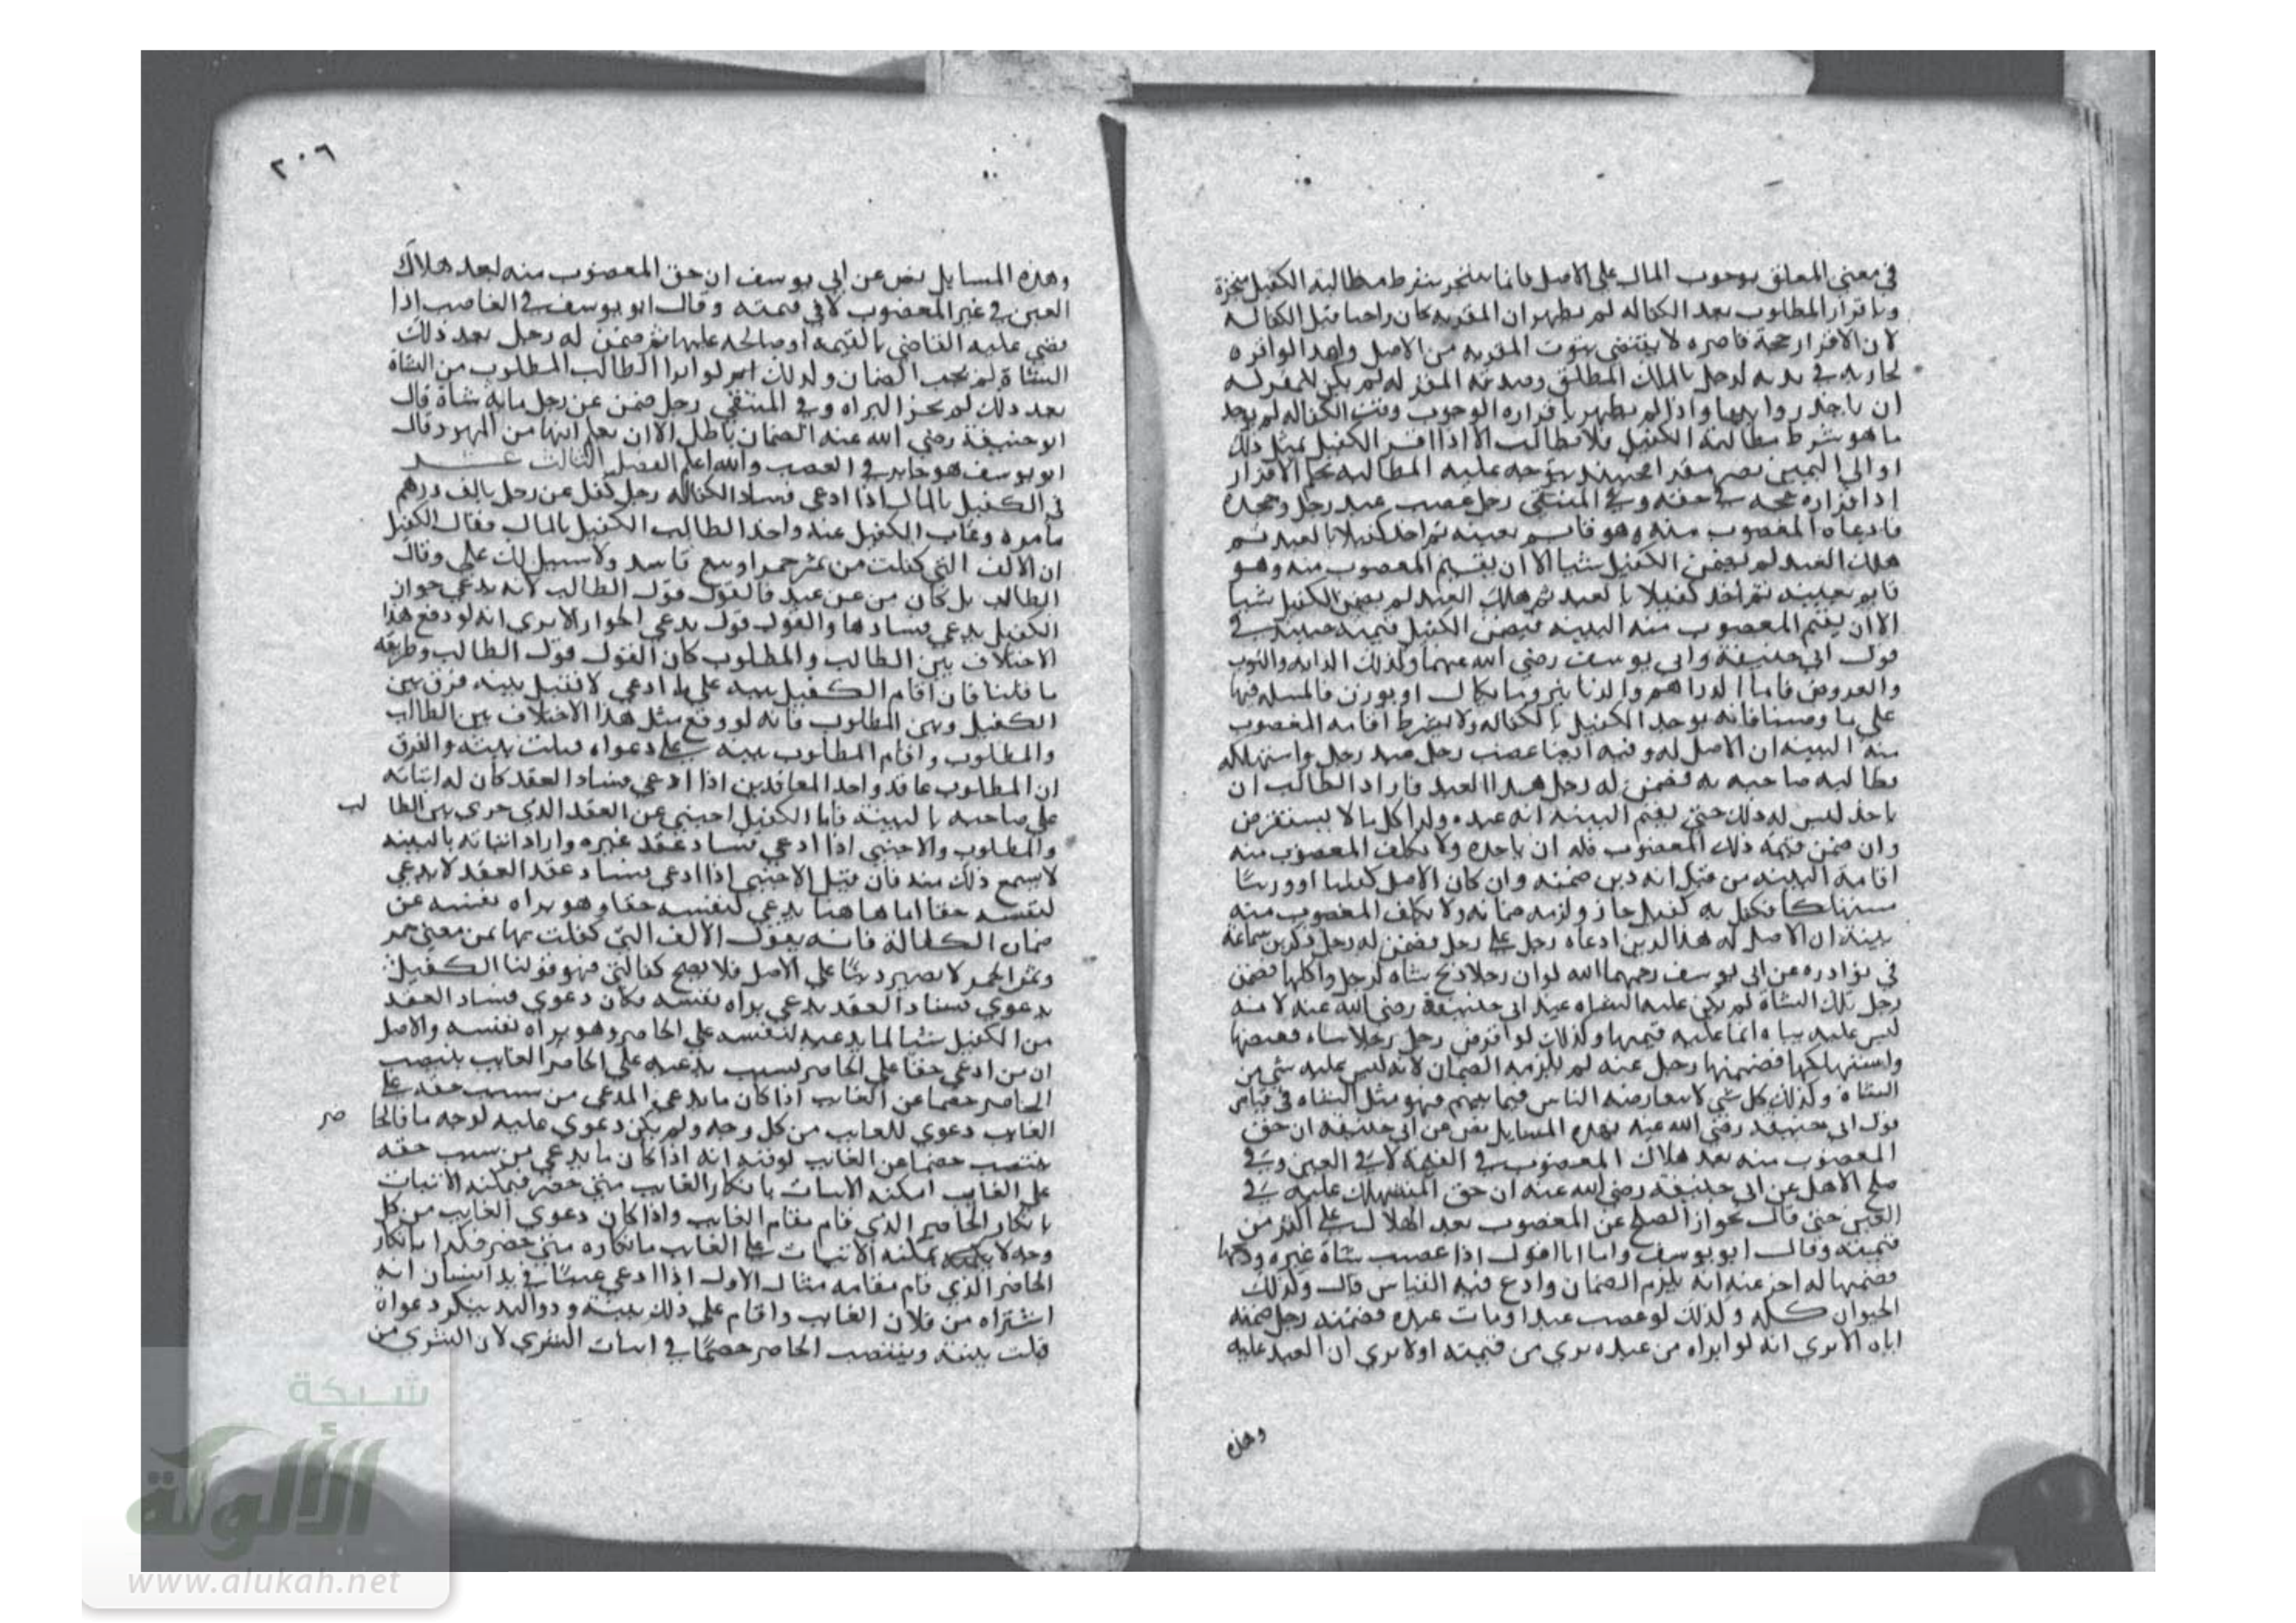 في معنى المعلق بوجوب المال على الاصل فانما يتنجز بشرط مطالبة الكفيل منجزة
وباقرار المطلوب بعد الكفاله لم يظهر ان المقر به كان واجبا قبل الكفاله
لان الاقرار حجة قاصره لا يقتضي ثبوت المقر به من الاصل ولهذا لو اقر
بجاريه في يديه لرجل بالملك المطلق وصدقه المقر له لم يكن للمقر له
ان ياخذ زوايدها واذا لم يظهر باقراره الوجوب وقت الكفاله لم يوجد
ما هو شرط مطالبة الكفيل فلا مطالب الا اذا اقر الكفيل بمثل ذلك
او ابي اليمين يصير مقرا فحينئذ يتوجه عليه المطالبه بحكم الاقرار
اذ اقراره حجه في حقه وفي المنتقى رجل غصب عبد رجل وجحده
فادعاه المغصوب منه وهو قايم بعينه ثم اخذ كفيلا بالعبد ثم
هلك العبد لم يضمن الكفيل شيا الا ان يقيم المغصوب منه وهو
قايم بعينه ثم اخذ كفيلا بالعبد ثم هلك العبد لم يضمن الكفيل شيا
الا ان يقيم المغصوب منه البينه فيضمن الكفيل قيمته حينئذ في
قول ابي حنيفة وابي يوسف رضي الله عنهما وكذلك الدابه والثوب
والعروض فاما الدراهم والدنانير وما يكال او يوزن فالمسله فيها
على ما وصفنا فانه يوخذ الكفيل بالكفاله ولا يشترط اقامه المغصوب
منه البينه ان الاصل له وفيه ايضا غصب رجل عبد رجل واستهلكه
فطالبه صاحبه به فضمن له رجل هذا العبد فاراد الطالب ان
ياخذ ليس له ذلك حتى يقيم البينه انه عبده وكذا كل ما لا يستقرض
وان ضمن قيمة ذلك المغصوب فله ان ياخذه ولا يكلف المغصوب منه
اقامة البينه من قبل انه دين ضمنه وان كان الاصل كيليا او وزنيا
مستهلكا فكفل به كفيل جاز ولزمه ضمانه ولا يكلف المغصوب منه
بينة ان الاصل له هذا الدين ادعاه رجل على رجل فضمن له رجل ذكر ابن سماعة
في نوادره عن ابي يوسف رحمهما الله لو ان رجلا ذبح شاه لرجل واكلها فضمن
رجل تلك الشاة لم يكن عليه الشاه عند ابي حنيفة رضي الله عنه لانه
ليس عليه شاه انما عليه قيمتها وكذلك لو اقرض رجل رجلا شاه فقبضها
واستهلكها فضمنها رجل عنه لم يلزمه الضمان لانه ليس عليه شي من
الشاة وكذلك كل شي لا يتقارضه الناس فيما بينهم فهو مثل الشاه في قياس
قول ابي حنيفه رضي الله عنه فهذه المسايل نص عن ابي حنيفه ان حق
المغصوب منه بعد هلاك المغصوب في القيمة لا في العين وفي
صلح الاصل عن ابي حنيفه رضي الله عنه ان حق المستهلك عليه في
العين حتى قال بجواز الصلح عن المغصوب بعد الهلاك على اكثر من
قيمته وقال ابو يوسف واما انا اقول اذا غصب شاة غيره وذبحها
فضمنها له اخر عنه انه يلزم الضمان وادع فيه القياس قال وكذلك
الحيوان كله وكذلك لو غصب عبدا ومات عبده فضمنه رجل ضمنه
اياه الا يرى انه لو ابراه من عبده بري من قيمته اولا يرى ان العبد عليه
وهذه
٢٠٦
وهذه المسايل نص عن ابي يوسف ان حق المغصوب منه بعد هلاك
العين في عين المغصوب لا في قيمته وقال ابو يوسف في الغاصب اذا
قضي عليه القاضي بالقيمه او صالحه عليها ثم ضمن له رجل بعد ذلك
الشاة لم يجب الضمان وكذلك لو ابرا الطالب المطلوب من الشاة
بعد ذلك لم يجز البراه وفي المنتقى رجل ضمن عن رجل مايه شاة قال
ابو حنيفة رضي الله عنه الضمان باطل الا ان يعلم انها من المهر وقال
ابو يوسف هو جايز في الغصب والله اعلم الفصل الثالث عشر
في الكفيل بالمال اذا ادعى فساد الكفاله رجل كفل عن رجل بالف درهم
بامره وغاب الكفيل عنه واخذ الطالب الكفيل بالمال فقال الكفيل
ان الالف التي كفلت من ثمن خمر او بيع فاسد ولا سبيل لك علي وقال
الطالب بل كان من ثمن عبد فالقول قول الطالب لانه يدعي جواز
الكفيل يدعي فسادها والقول قول يدعي الجواز الا يرى انه لو وقع هذا
الاختلاف بين الطالب والمطلوب كان القول قول الطالب وطريقه
ما قلنا فان اقام الكفيل بينه على ما ادعى لا تقبل بينه فرق بين
الكفيل وبين المطلوب فانه لو وقع مثل هذا الاختلاف بين الطالب
والمطلوب واقام المطلوب بينه على دعواه قبلت بينته والفرق
ان المطلوب عاقد واحد المعاقدين اذا ادعى فساد العقد كان له اثباته
على صاحبه بالبينة فاما الكفيل اجنبي عن العقد الذي جرى بين الطالب
والمطلوب والاجنبي اذا ادعى فساد عقد غيره واراد اثباته بالبينه
لا يسمع ذلك منه فان قيل الاجنبي اذا ادعى فساد عقد العقد لا يدعي
لنفسه حقا اما هاهنا يدعي لنفسه حقا وهو براه نفسه عن
ضمان الكفالة فانه يقول الالف التي كفلت بها ثمن خمر
وثمن الخمر لا يصير دينا على الاصل فلا يصح كفالتي فهو قولنا الكفيل
بدعوى فساد العقد يدعي براه نفسه فكان دعوى فساد العقد
من الكفيل شيا لما يدعيه لنفسه على الحاضر وهو براه نفسه والاصل
ان من ادعى حقا على الحاضر بسبب يدعيه على الحاضر الغايب ينتصب
الحاضر خصما عن الغايب اذا كان ما يدعي المدعي من سبب حقه على
الغايب دعوى للغايب من كل وجه ولم يكن دعوى عليه لوجه ما فالحاضر
ينتصب خصما عن الغايب لوقته انه اذا كان ما يدعي من سبب حقه
على الغايب امكنه الاثبات بانكار الغايب متى حضر فيمكنه الاثبات
بانكار الحاضر الذي قام مقام الغايب واذا كان دعوى الغايب من كل
وجه لا يمكنه الاثبات على الغايب بانكاره متى حضر فكذا بانكار
الحاضر الذي قام مقامه مثال الاول اذا ادعى عينا في يد انسان انه
اشتراه من فلان الغايب واقام على ذلك بينة وذو اليد ينكر دعواه
قبلت بينته وينتصب الحاضر خصما في اثبات الشرى لان الشرى من
شبكة
الألوكة
www.alukah.net